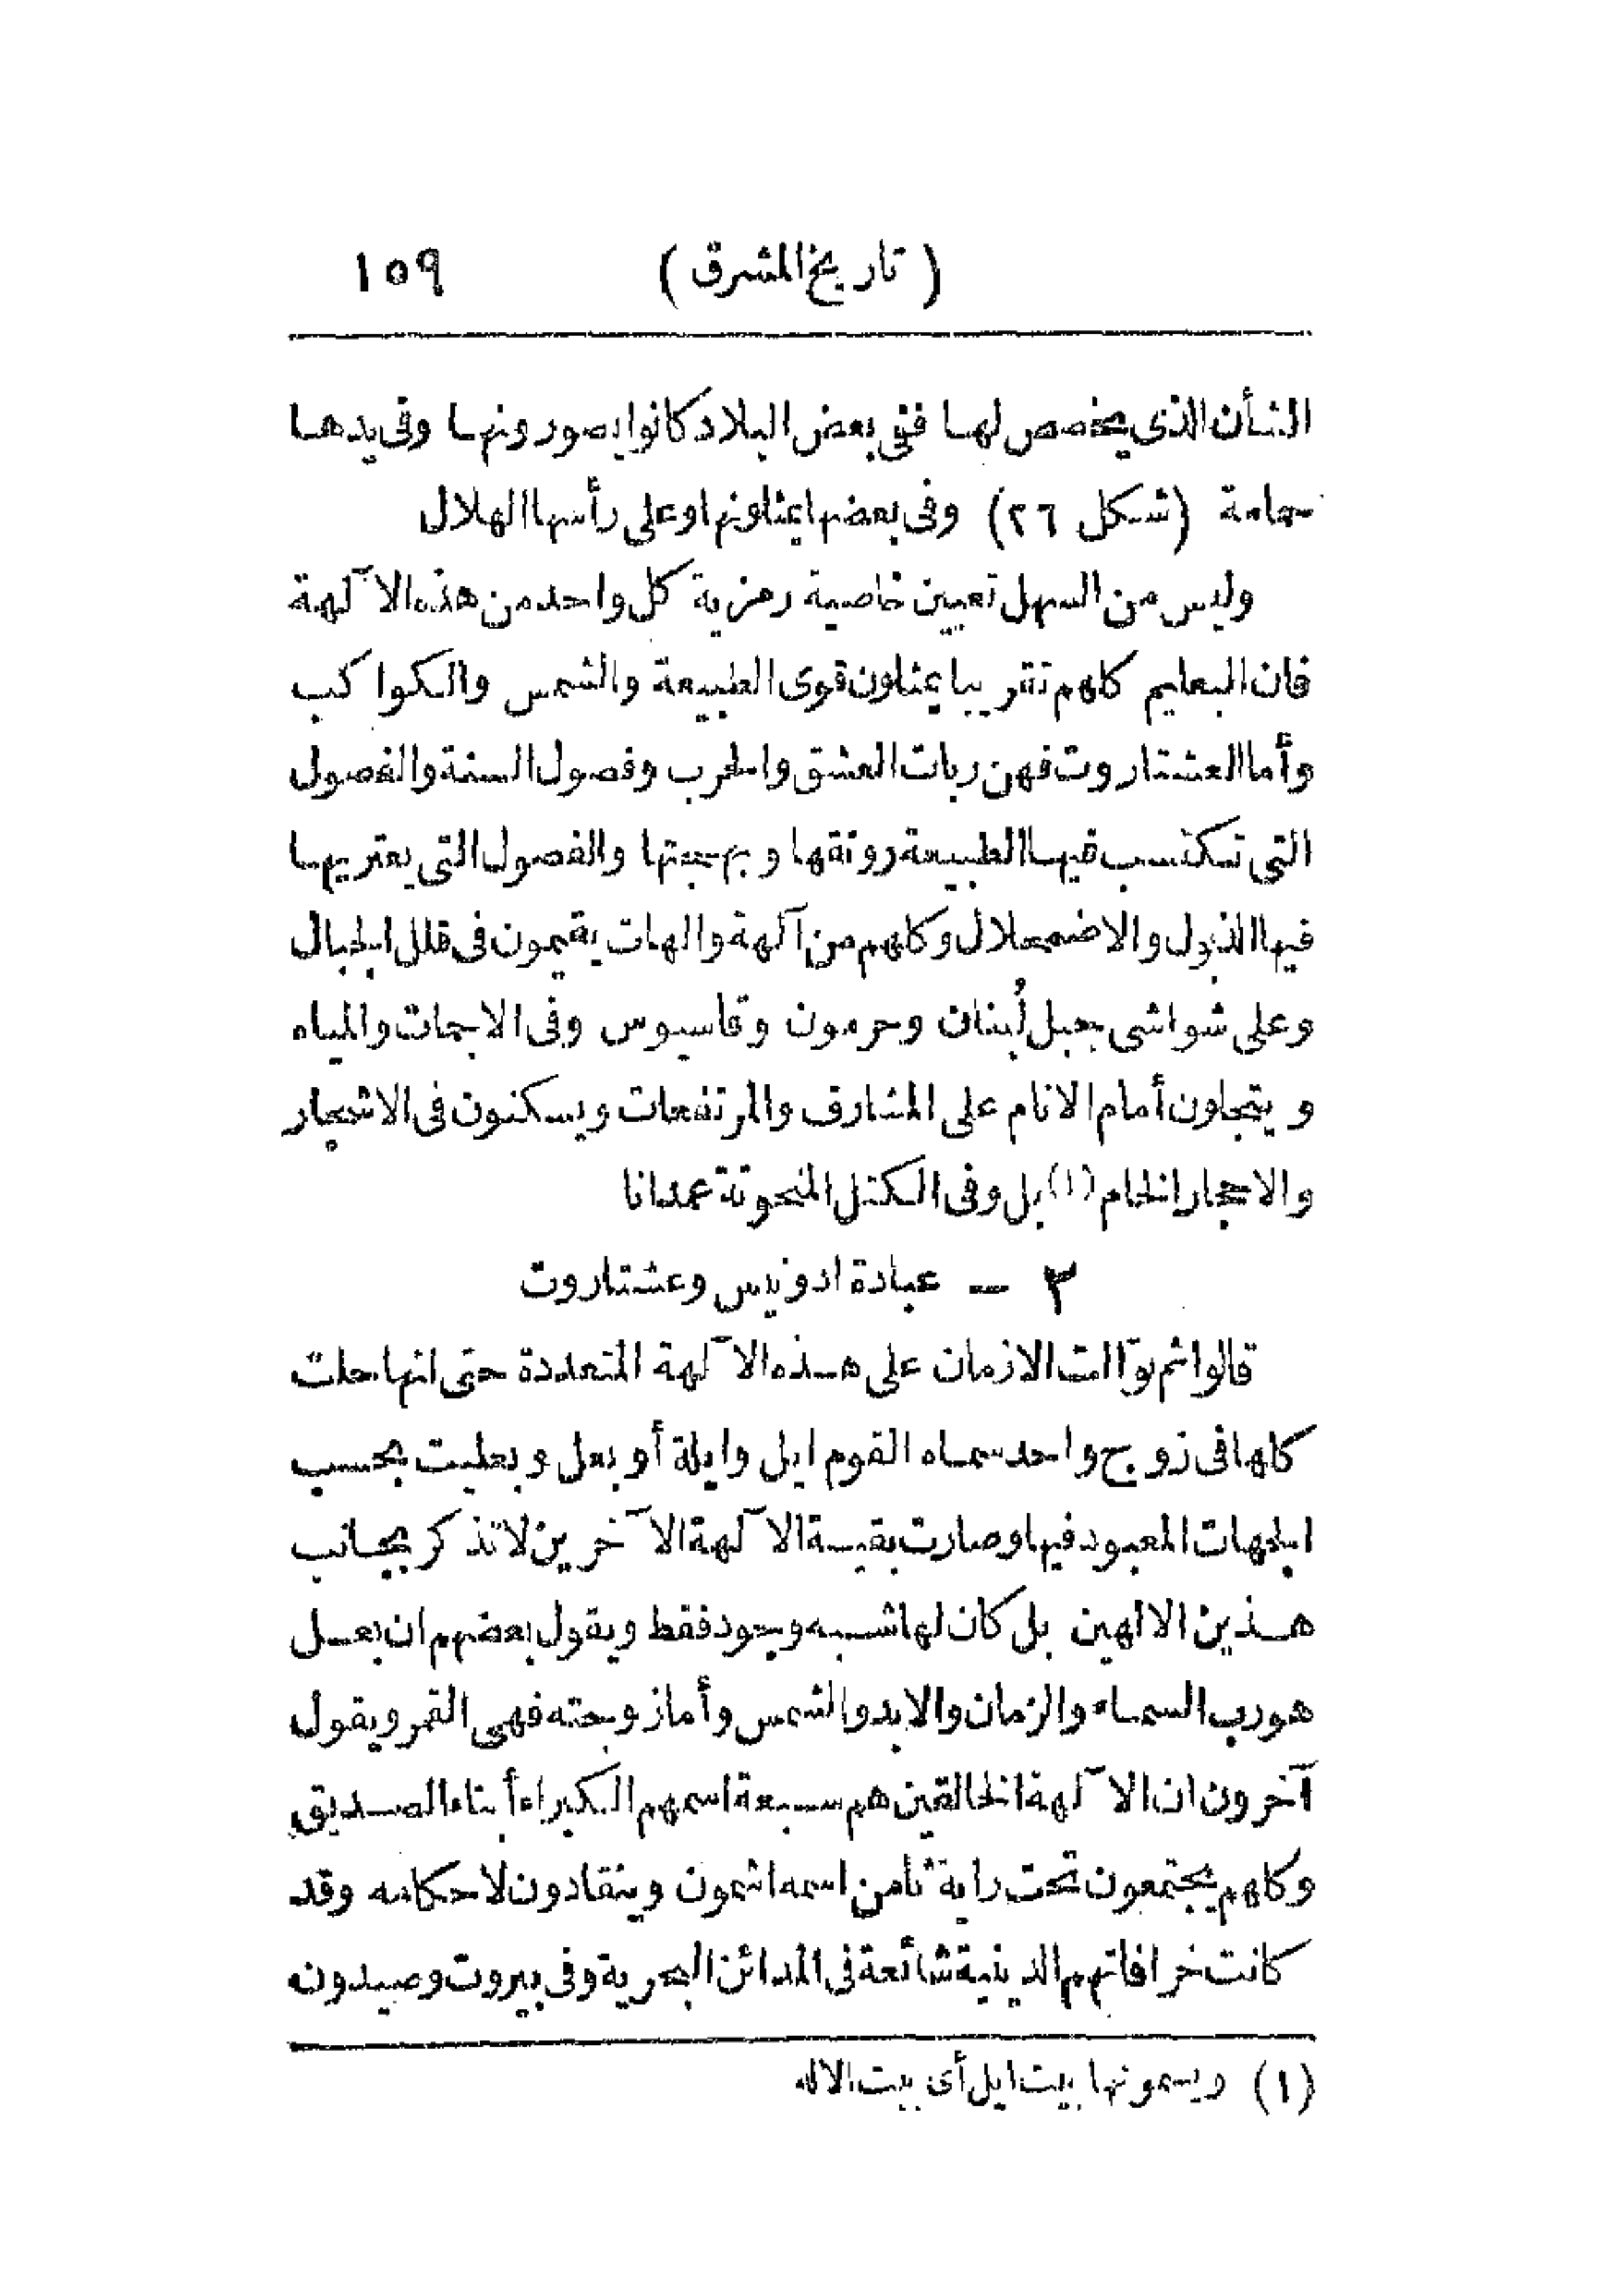 ( تاريخ المشرق ) ١٥٩
الشأن الذى يخصص لها ففى بعض البلاد كانوا يصورونها وفى يدها
حمامة (شكل ٢٦) وفى بعضها يمثلونها وعلى رأسها الهلال
وليس من السهل تعيين خاصية رمزية كل واحد من هذه الآلهة
فان البعاليم كلهم تقريبا يمثلون قوى الطبيعة والشمس والكواكب
وأما العشتاروت فهن ربات العشق والحرب وفصول السنة والفصول
التى تكتسب فيها الطبيعة رونقها وبهجتها والفصول التى يعتريها
فيها الذبول والاضمحلال وكلهم من آلهة والهات يقيمون فى قلل الجبال
وعلى شواشى جبل لُبنان وحرمون وقاسيوس وفى الاجمات والمياه
ويتجلون أمام الانام على المشارف والمرتفعات ويسكنون فى الاشجار
والاحجار الخام (١) بل وفى الكتل المنحوتة عمدانا
٣ ــ عبادة ادونيس وعشتاروت
قالوا ثم توالت الازمان على هذه الآلهة المتعددة حتى انها حلت
كلها فى زوج واحد سماه القوم ايل وايلة أو بعل وبعليت بحسب
الجهات المعبود فيها وصارت بقية الآلهة الآخرين لا تذكر بجانب
هذين الالهين بل كان لها شبه وجود فقط ويقول بعضهم ان بعل
هو رب السماء والزمان والابد والشمس وأما زوجته فهى القمر ويقول
آخرون ان الآلهة الخالقين هم سبعة اسمهم الكبراء أبناء الصديق
وكلهم يجتمعون تحت راية ثامن اسمه اشمون وينقادون لاحكامه وقد
كانت خرافاتهم الدينية شائعة فى المدائن البحرية وفى بيروت وصيدون
(١) ويسمونها بيت ايل أى بيت الاله